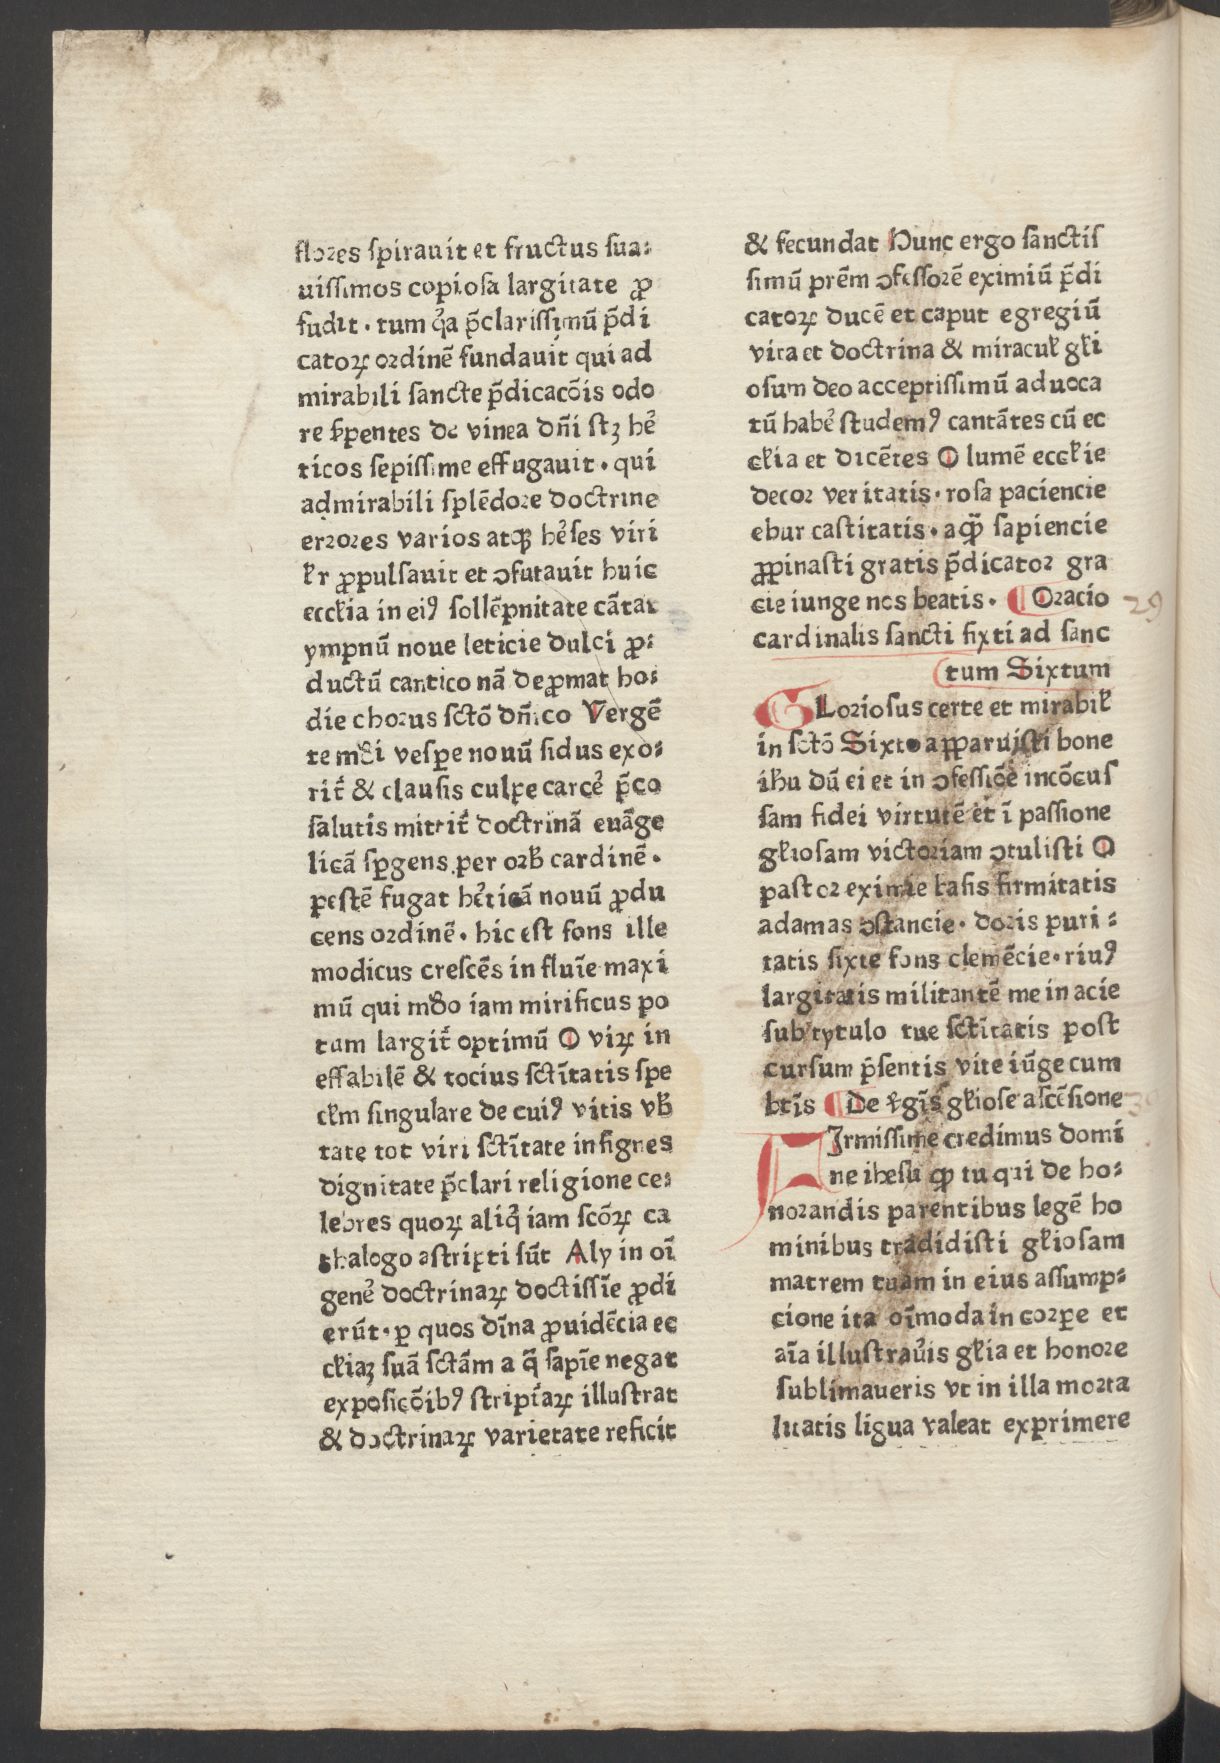 flores spirauit et fructus sua:
uissimos copiosa largitate ꝓ
fudit . tum qͥa p̄clarissimū p̄di
catoꝝ ordinē fundauit qui ad
mirabili sancte p̄dicacōis odo
re s̄pentes de vinea dn̄i stꝫ he᷒
ticos sepissime effugauit . qui
admirabili splēdore doctrine
errores varios atqꝫ he᷒ses viri
lꝛ ꝓpulsauit et ↄfutauit huic
eccłia in eiꝰ sollēpnitate cātat
ympnū noue leticie dulci ꝓ:
ductū cantico nā deꝓmat ho:
die chorus sctō dn̄ico Vergē
te mūdi vespe nouū sidus exo:
rit̄ & clausis culpe carce᷒ p̄co
salutis mittit̄ doctrinā euāge
licā spgens per orb̄ cardinē .
pestē fugat he᷒ticā nouū ꝓdu
cens ordinē . hic est fons ille
modicus crescēs in fluīe maxi
mū qui mūdo iam mirificus po
tum largit̄ optimū O viꝝ in
effabilē & tocius sctītatis spe
cłm singulare de cuiꝰ vitis vb̄
tate tot viri sctītate insignes
dignitate p̄clari religione ce:
lebres quoꝝ aliqͥ iam scōꝝ ca
thalogo astripti sūt Aly in oī
gene᷒ doctrinaꝝ doctissīe ꝓdi
erūt . ꝑ quos dīna ꝓuidēcia ec
cłiaꝫ suā sctām a q̄ sapīe negat
exposicōibꝰ stript̄aꝝ illustrat
& doctrinaꝝ varietate reficit
& fecundat Hunc ergo sanctis
simū prēm ↄfessorē eximiū p̄di
catoꝝ ducē et caput egregiū
vita et doctrina & miracuł głi
osum deo acceptissimū aduoca
tū habe᷒ studemꝰ cantātes cū ec
cłia et dicētes O lumē eccłie
decor veritatis . rosa paciencie
ebur castitatis . aqͣꝫ sapiencie
ꝓpinasti gratis p̄dicator gra
cie iunge nos beatis . ¶ Oracio 29
cardinalis sancti sixti ad sanc
tum Sixtum
GLoriosus certe et mirabił
in sctō Sixto apparuisti bone
ihu dū ei et in ↄfessiōe incōcus
sam fidei virtutē et ī passione
głiosam victoriam ↄtulisti O
pastor eximie basis firmitatis
adamas ↄstancie . doris puri :
tatis sixte fons clemēcie . riuꝰ
largitatis militantē me in acie
sub tytulo tue sctītatis post
cursum p̄sentis vite iūge cum
btīs ¶ De v̾gīs głiose ascēsione
FIrmissime credimus domi
ne ihesu qꝫ tu qui de ho:
norandis parentibus legē ho
minibus tradidisti głiosam
matrem tuam in eius assump:
cione ita oīmoda in corpe et
aīa illustrau᷒is głia et honore
sublimaueris vt in illa morta
litatis ligua valeat exprimere